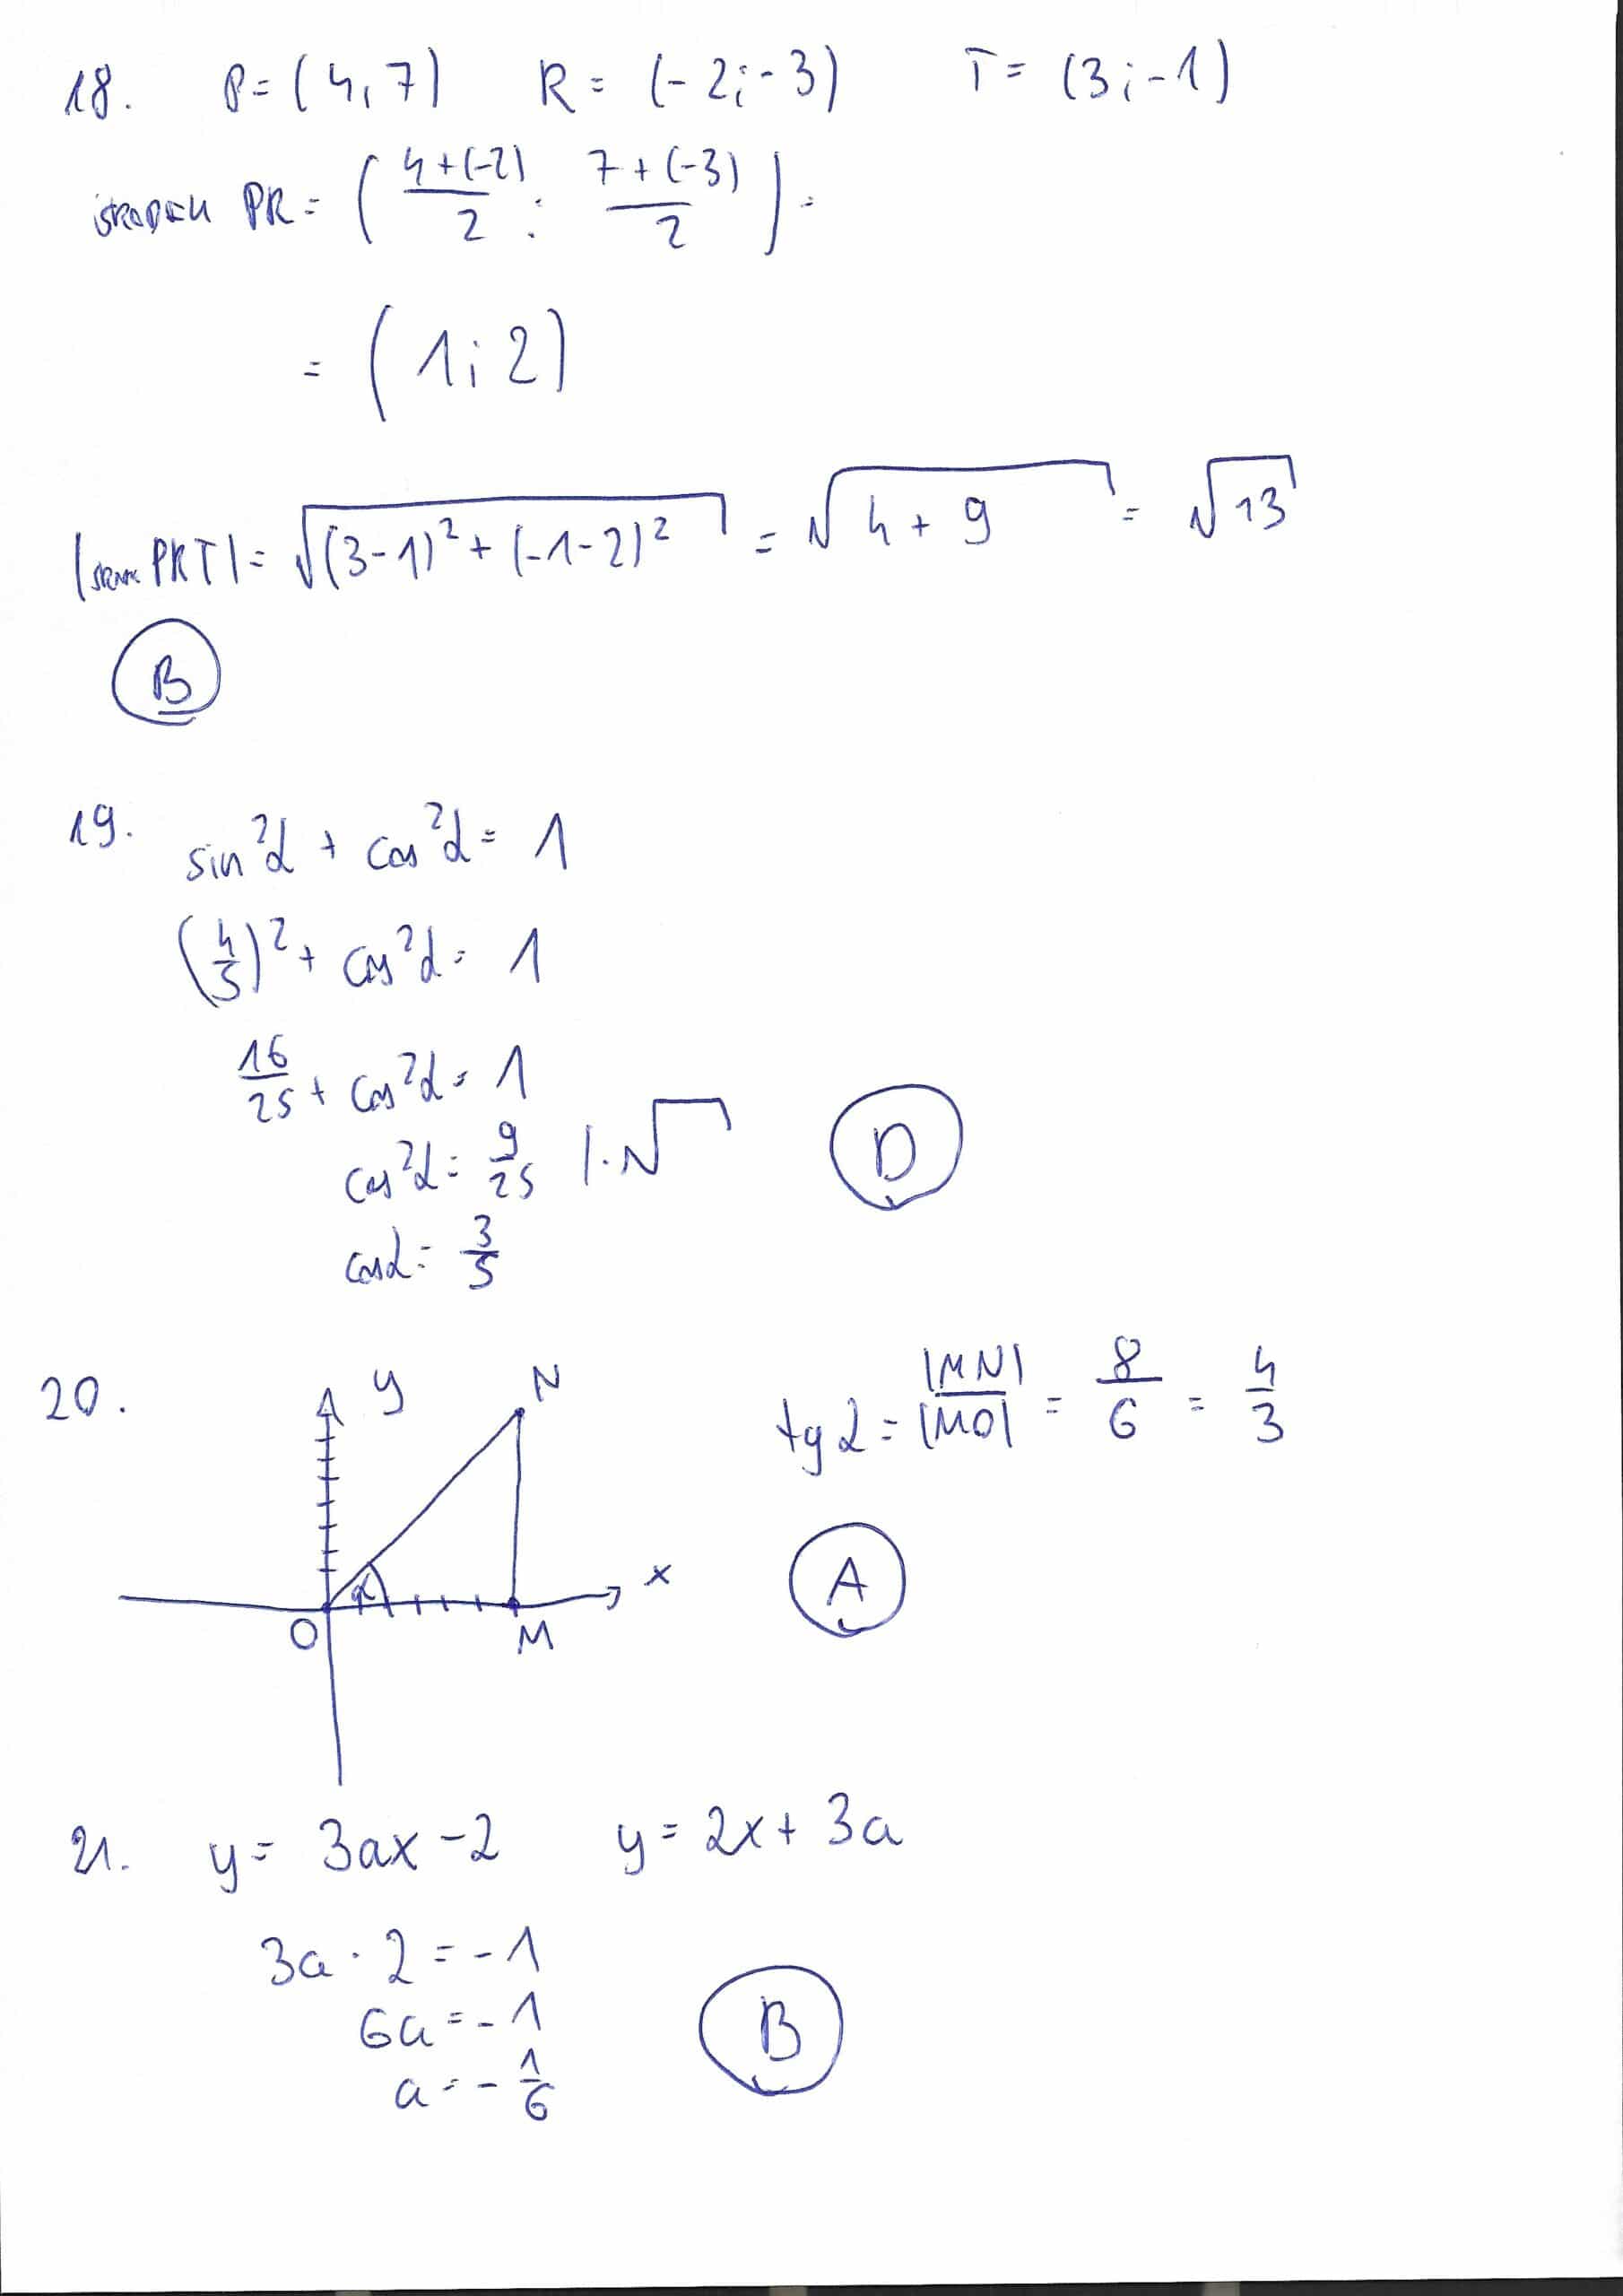 18. P = (4, 7) R = (-2; -3) T = (3; -1)
środek PR = ( \frac{4+(-2)}{2} ; \frac{7+(-3)}{2} ) =
= (1; 2)
|PRT| = √((3-1)² + (-1-2)²) = √(4 + 9) = √13
B
19. sin²α + cos²α = 1
(\frac{4}{5})² + cos²α = 1
\frac{16}{25} + cos²α = 1
cos²α = \frac{9}{25} |·√ D
cosα = \frac{3}{5}
20. y N tgα = \frac{|MN|}{|MO|} = \frac{8}{6} = \frac{4}{3}
α x A
O M
21. y = 3ax - 2 y = 2x + 3a
3a · 2 = -1
6a = -1 B
a = -\frac{1}{6}